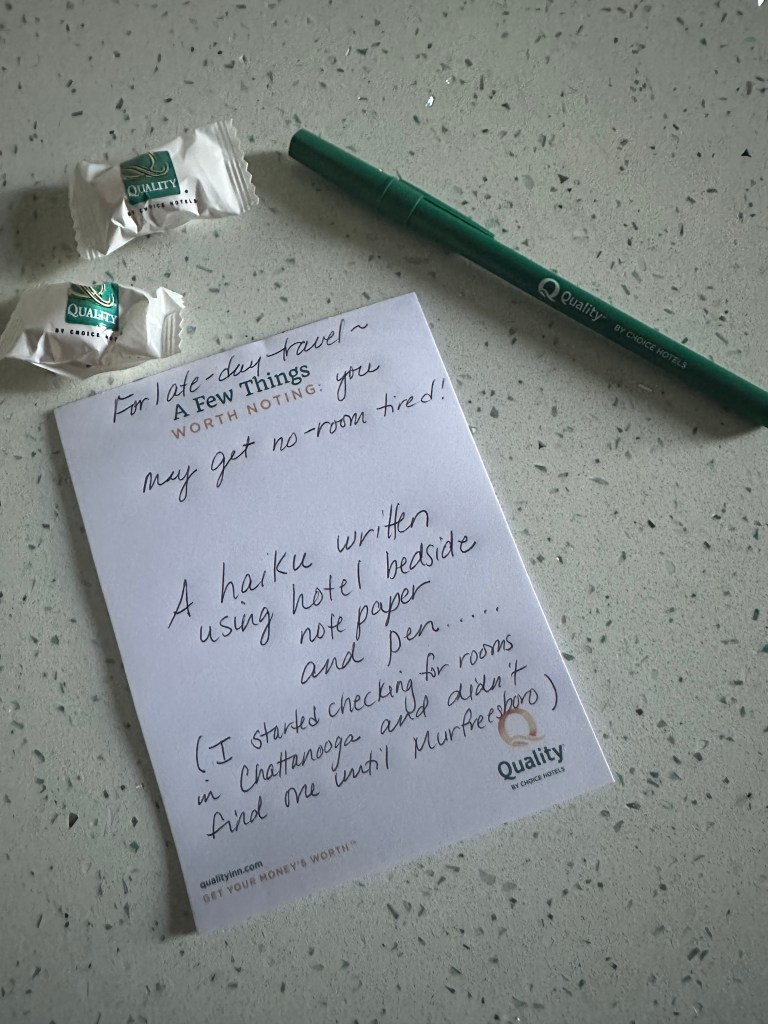 QUALITY
BY CHOICE HOTELS
QUALITY
BY CHOICE
Quality
BY CHOICE HOTELS
For late-day-travel~
A Few Things
WORTH NOTING: you
may get no-room tired!
A haiku written
using hotel bedside
note paper
and pen.....
(I started checking for rooms
in Chattanooga and didn't
find one until Murfreesboro)
Quality
BY CHOICE HOTELS
qualityinn.com
GET YOUR MONEY'S WORTH™